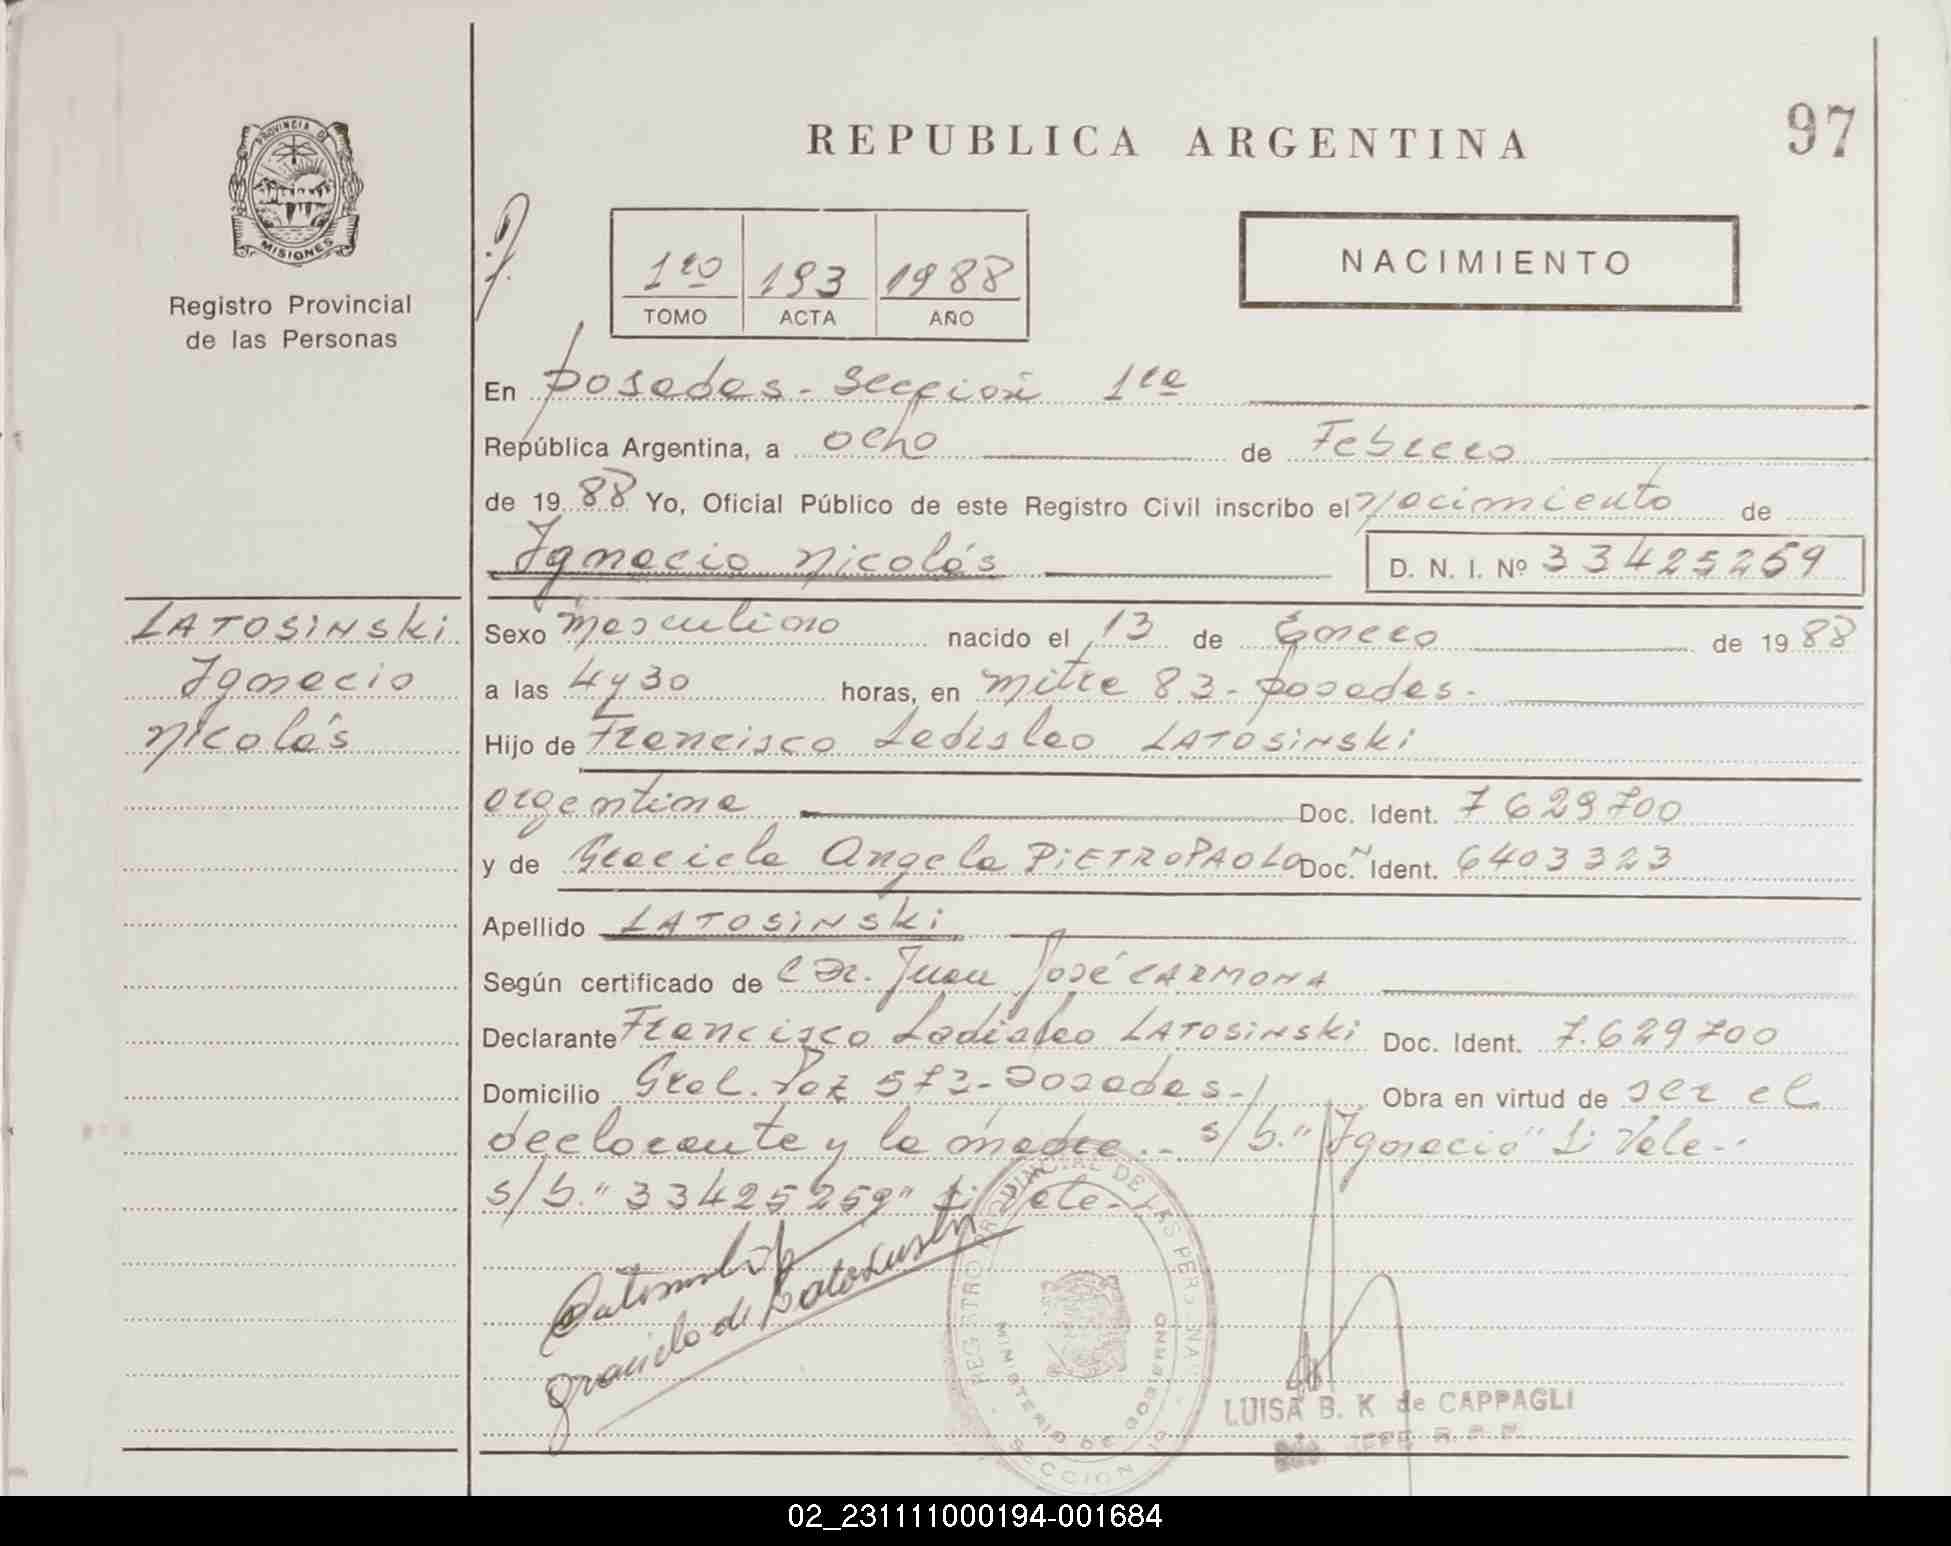 PROVINCIA DE
MISIONES
Registro Provincial
de las Personas
REPUBLICA ARGENTINA
97
1ro 193 1988
TOMO ACTA AÑO
NACIMIENTO
En Posadas - Sección 1ra
República Argentina, a ocho de Febrero
de 19 88 Yo, Oficial Público de este Registro Civil inscribo el nacimiento de
Ignacio Nicolás D. N. I. Nº 33425259
LATOSINSKI
Ignacio
Nicolás
Sexo masculino nacido el 13 de Enero de 19 88
a las 4 y 30 horas, en Mitre 83 - Posadas -
Hijo de Francisco Ladislao LATOSINSKI
argentina Doc. Ident. 7629700
y de Graciela Angela PIETROPAOLO Doc. Ident. 6403323
Apellido LATOSINSKI
Según certificado de Dr. Juan José CARMONA
Declarante Francisco Ladislao LATOSINSKI Doc. Ident. 7.629700
Domicilio Gral. Paz 573 - Posadas - Obra en virtud de ser el
declarante y la madre. - s/b. "Ignacio" Si Vale -
s/b. "33425259" Si Vale -
Graciela de Latosinski
REGISTRO PROVINCIAL DE LAS PERSONAS
MINISTERIO DE GOBIERNO
SECCION
LUISA B. K de CAPPAGLI
JEFE R. P. P.
02_231111000194-001684